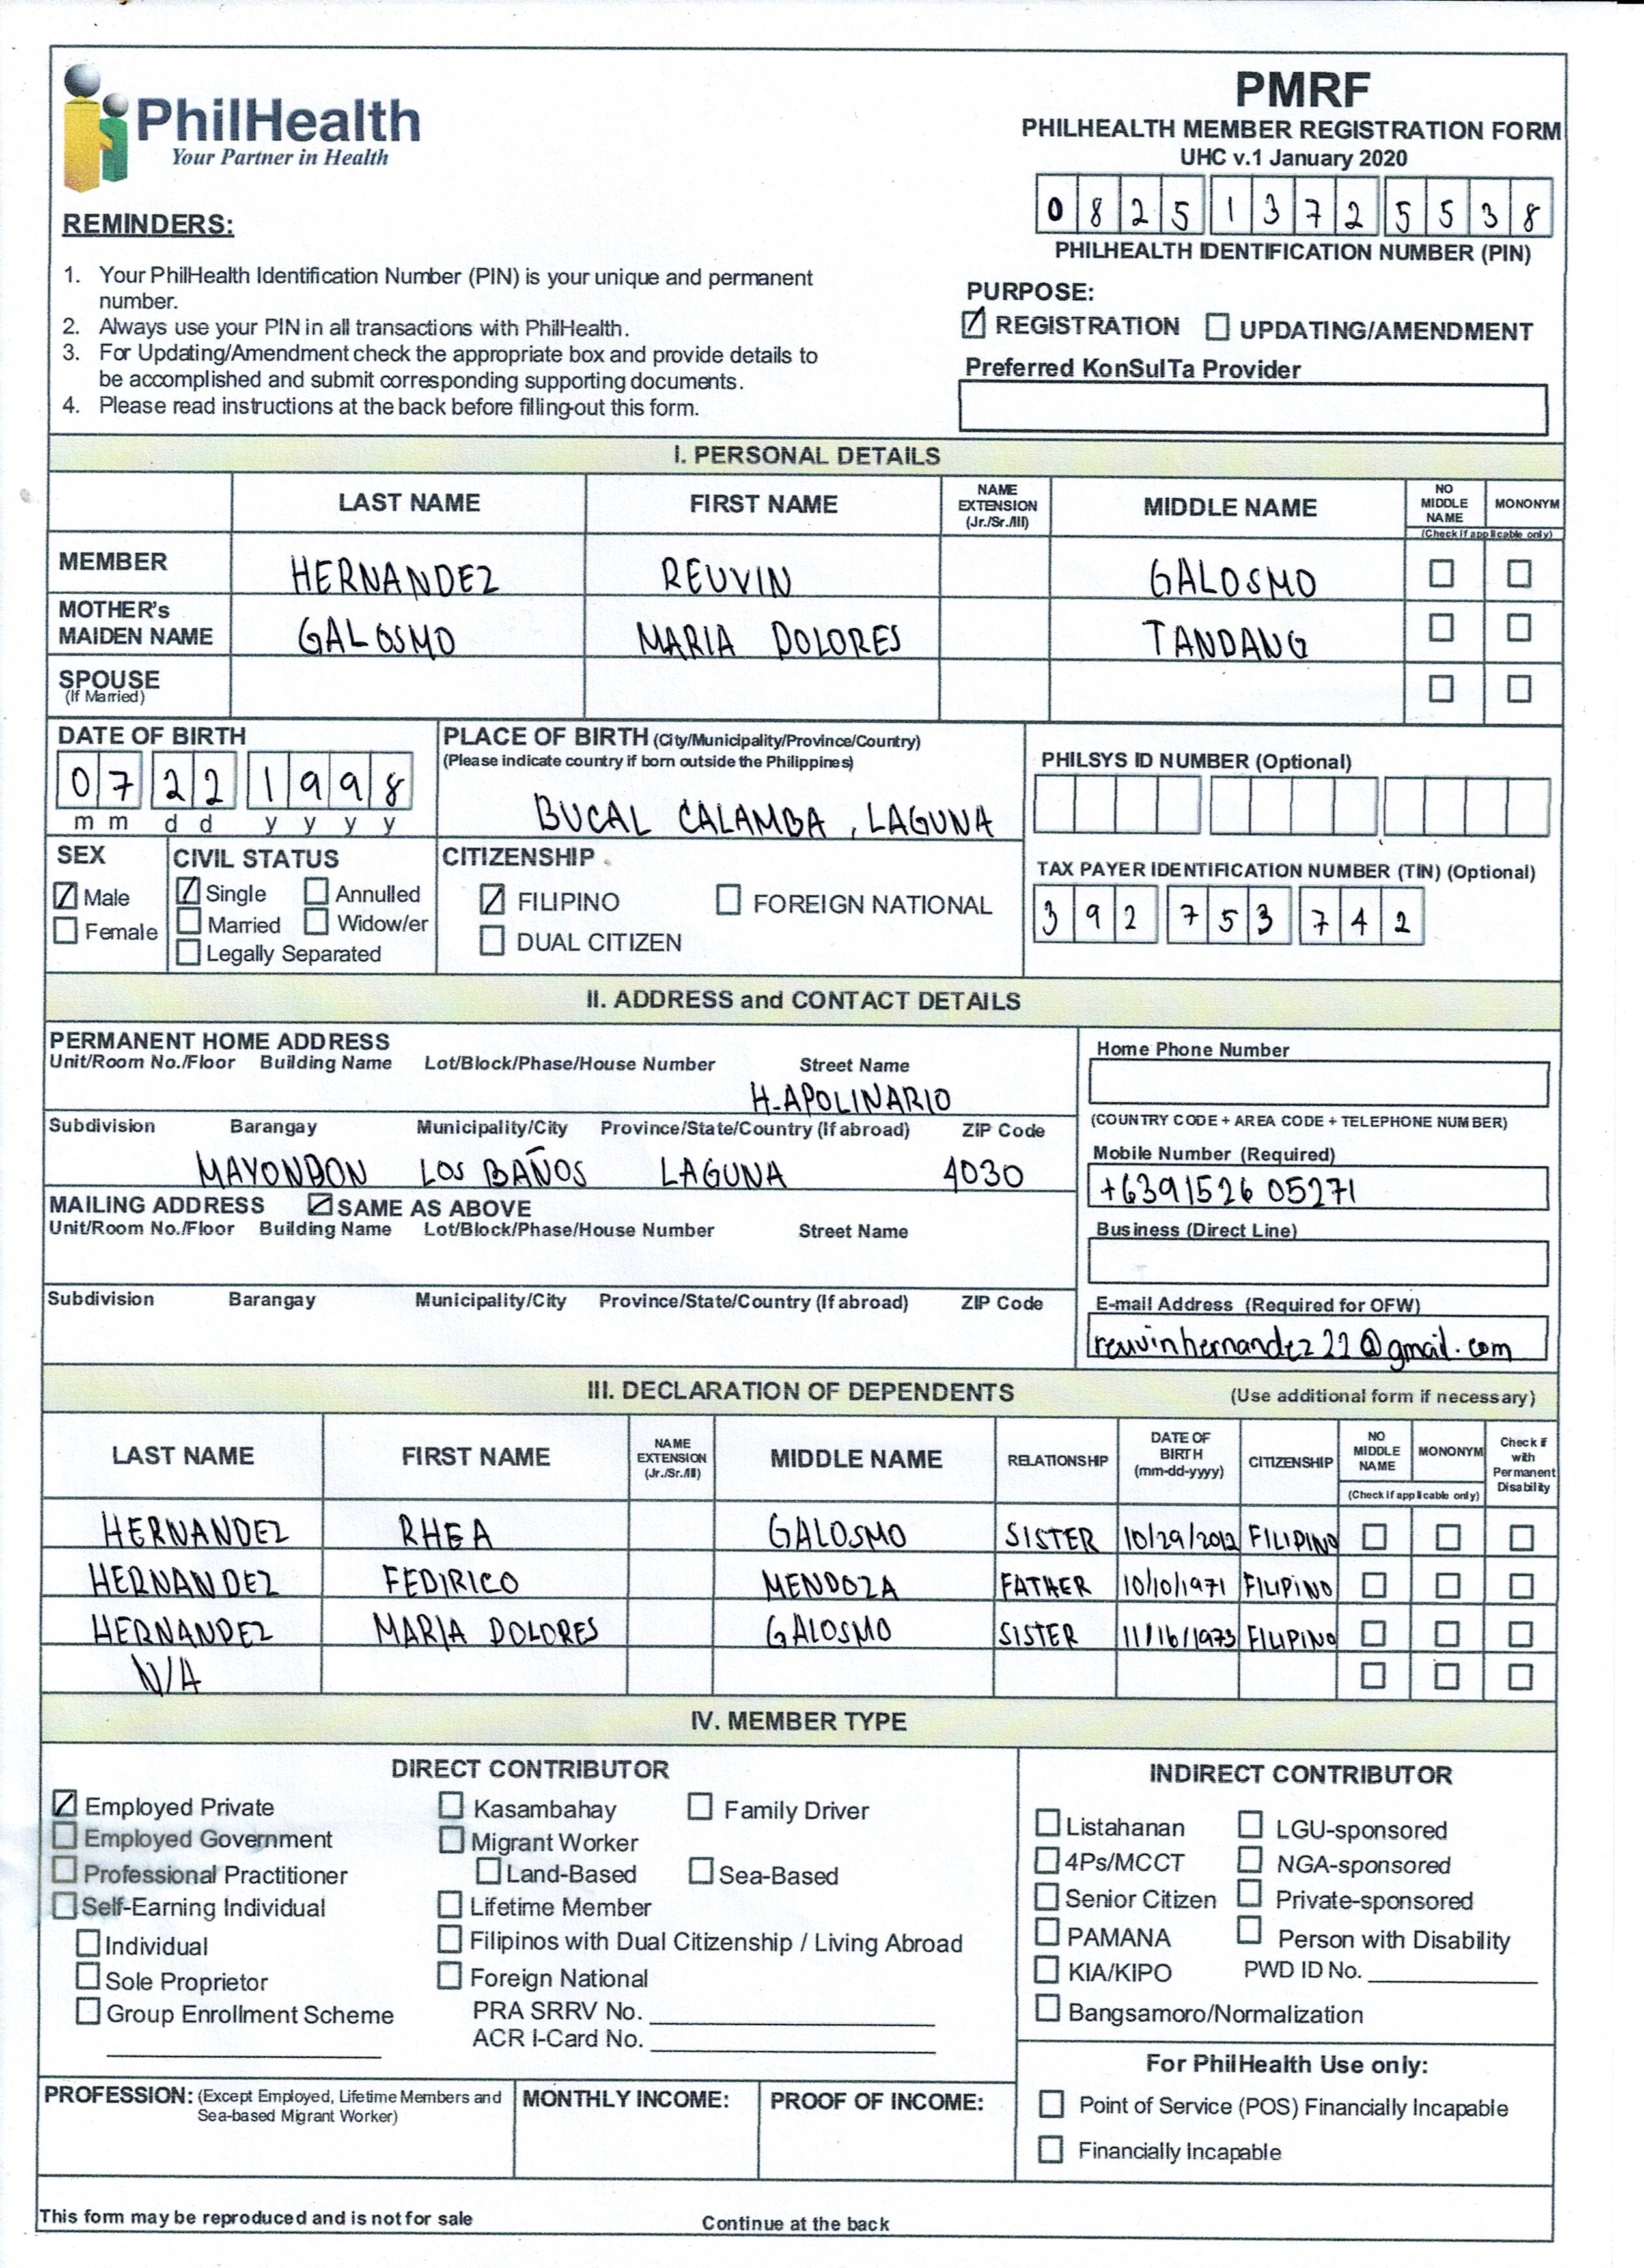 PhilHealth
Your Partner in Health
PMRF
PHILHEALTH MEMBER REGISTRATION FORM
UHC v.1 January 2020
0825 1372 5538
PHILHEALTH IDENTIFICATION NUMBER (PIN)
REMINDERS:
1. Your PhilHealth Identification Number (PIN) is your unique and permanent
number.
2. Always use your PIN in all transactions with PhilHealth.
3. For Updating/Amendment check the appropriate box and provide details to
be accomplished and submit corresponding supporting documents.
4. Please read instructions at the back before filling-out this form.
PURPOSE:
REGISTRATION UPDATING/AMENDMENT
Preferred KonSulTa Provider
I. PERSONAL DETAILS
LAST NAME FIRST NAME NAME EXTENSION (Jr./Sr./III) MIDDLE NAME NO MIDDLE NAME MONONYM
(Check if applicable only)
MEMBER HERNANDEZ REUVIN GALOSMO
MOTHER's MAIDEN NAME GALOSMO MARIA DOLORES TANDANG
SPOUSE
(If Married)
DATE OF BIRTH
07 22 1998
m m d d y y y y
PLACE OF BIRTH (City/Municipality/Province/Country)
(Please indicate country if born outside the Philippines)
BUCAL CALAMBA, LAGUNA
PHILSYS ID NUMBER (Optional)
SEX
Male
Female
CIVIL STATUS
Single Annulled
Married Widow/er
Legally Separated
CITIZENSHIP
FILIPINO FOREIGN NATIONAL
DUAL CITIZEN
TAX PAYER IDENTIFICATION NUMBER (TIN) (Optional)
392 753 742
II. ADDRESS and CONTACT DETAILS
PERMANENT HOME ADDRESS
Unit/Room No./Floor Building Name Lot/Block/Phase/House Number Street Name
H. APOLINARIO
Subdivision Barangay Municipality/City Province/State/Country (If abroad) ZIP Code
MAYONDON LOS BAÑOS LAGUNA 4030
MAILING ADDRESS SAME AS ABOVE
Unit/Room No./Floor Building Name Lot/Block/Phase/House Number Street Name
Subdivision Barangay Municipality/City Province/State/Country (If abroad) ZIP Code
Home Phone Number
(COUNTRY CODE + AREA CODE + TELEPHONE NUMBER)
Mobile Number (Required)
+6391526 05271
Business (Direct Line)
E-mail Address (Required for OFW)
reuvinhernandez22@gmail.com
III. DECLARATION OF DEPENDENTS (Use additional form if necessary)
LAST NAME FIRST NAME NAME EXTENSION (Jr./Sr./III) MIDDLE NAME RELATIONSHIP DATE OF BIRTH (mm-dd-yyyy) CITIZENSHIP NO MIDDLE NAME MONONYM Check if with Permanent Disability
(Check if applicable only)
HERNANDEZ RHEA GALOSMO SISTER 10/29/2012 FILIPINO
HERNANDEZ FEDIRICO MENDOZA FATHER 10/10/1971 FILIPINO
HERNANDEZ MARIA DOLORES GALOSMO SISTER 11/16/1973 FILIPINO
N/A
IV. MEMBER TYPE
DIRECT CONTRIBUTOR
Employed Private Kasambahay Family Driver
Employed Government Migrant Worker
Professional Practitioner Land-Based Sea-Based
Self-Earning Individual Lifetime Member
Individual Filipinos with Dual Citizenship / Living Abroad
Sole Proprietor Foreign National
Group Enrollment Scheme PRA SRRV No.
ACR I-Card No.
INDIRECT CONTRIBUTOR
Listahanan LGU-sponsored
4Ps/MCCT NGA-sponsored
Senior Citizen Private-sponsored
PAMANA Person with Disability
KIA/KIPO PWD ID No.
Bangsamoro/Normalization
PROFESSION: (Except Employed, Lifetime Members and
Sea-based Migrant Worker)
MONTHLY INCOME:
PROOF OF INCOME:
For PhilHealth Use only:
Point of Service (POS) Financially Incapable
Financially Incapable
This form may be reproduced and is not for sale
Continue at the back